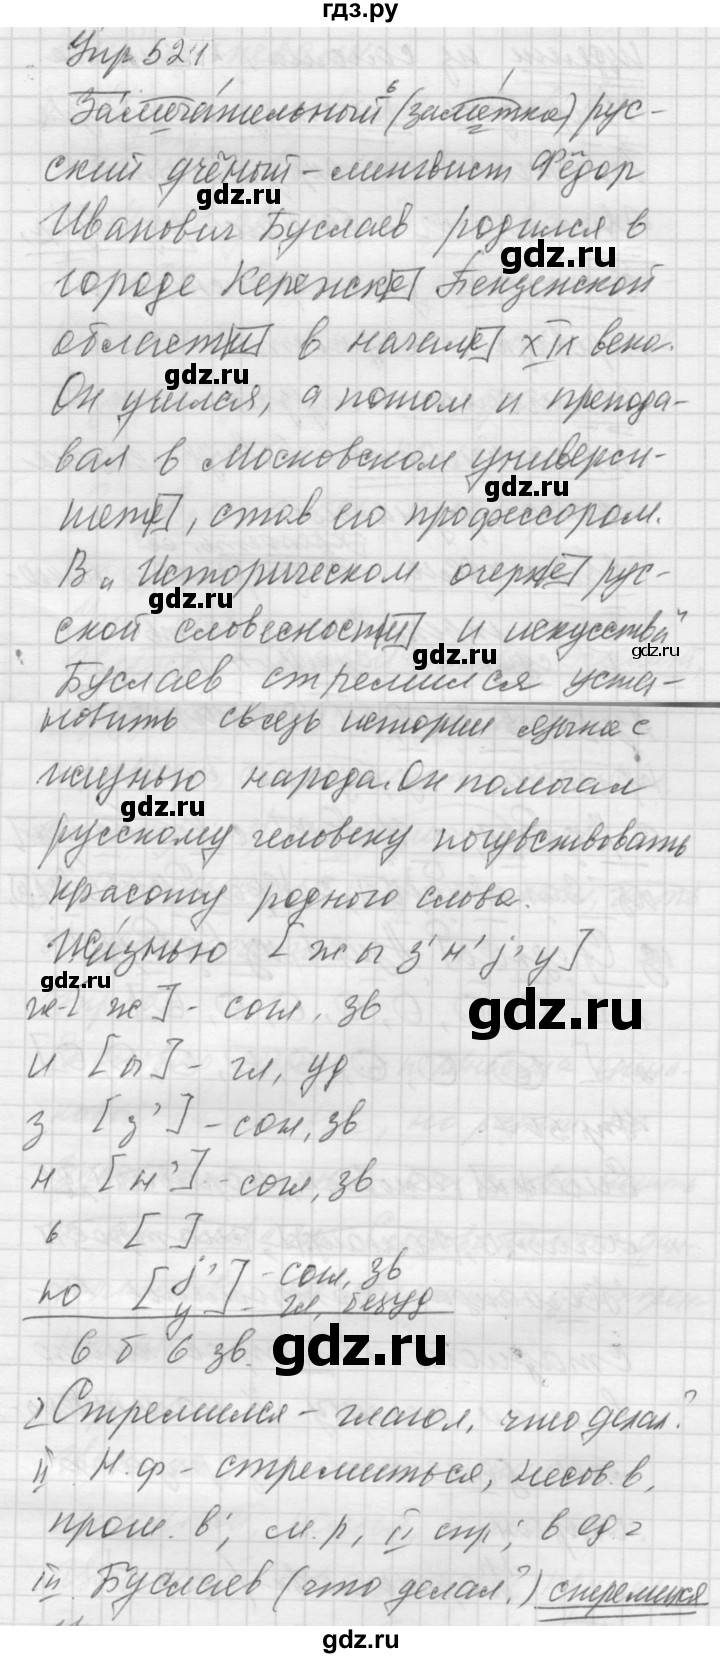 гдз.ру
Упр 521
Замечательный⁶ (заметка) рус-
ский учёный – лингвист Фёдор
gdz.ru
Иванович Буслаев родился в
gdz.ru
городе Керенск[е] Пензенской
област[и] в начал[е] XIX века.
gdz.ru
Он учился, а потом и препода-
вал в Московском универси-
gdz.ru
тет[е], став его профессором.
В „Историческом очерк[е] рус-
gdz.ru
ской словесност[и] и искусства"
gdz.ru
gdz.ru
Буслаев стремился уста-
новить связь истории языка с
жизнью народа. Он помогал
gdz.ru
русскому человеку почувствовать
красоту родного слова.
Жизнью [ж ы з' н' j' у]
gdz.ru
gdz.ru
ж - [ж] - согл, зв
и [ы] - гл, уд
з [з'] - согл, зв
н [н'] - согл, зв
ь [ ]
ю [j' - согл, зв
у] - гл, безуд
6 б 6 зв.
gdz.ru
I Стремился – глагол, что делал?
II. Н.ф – стремиться, несов. в,
прош. в; м.р, II спр; в ед. ч
III. Буслаев (что делал?) стремился
gdz.ru
gdz.ru